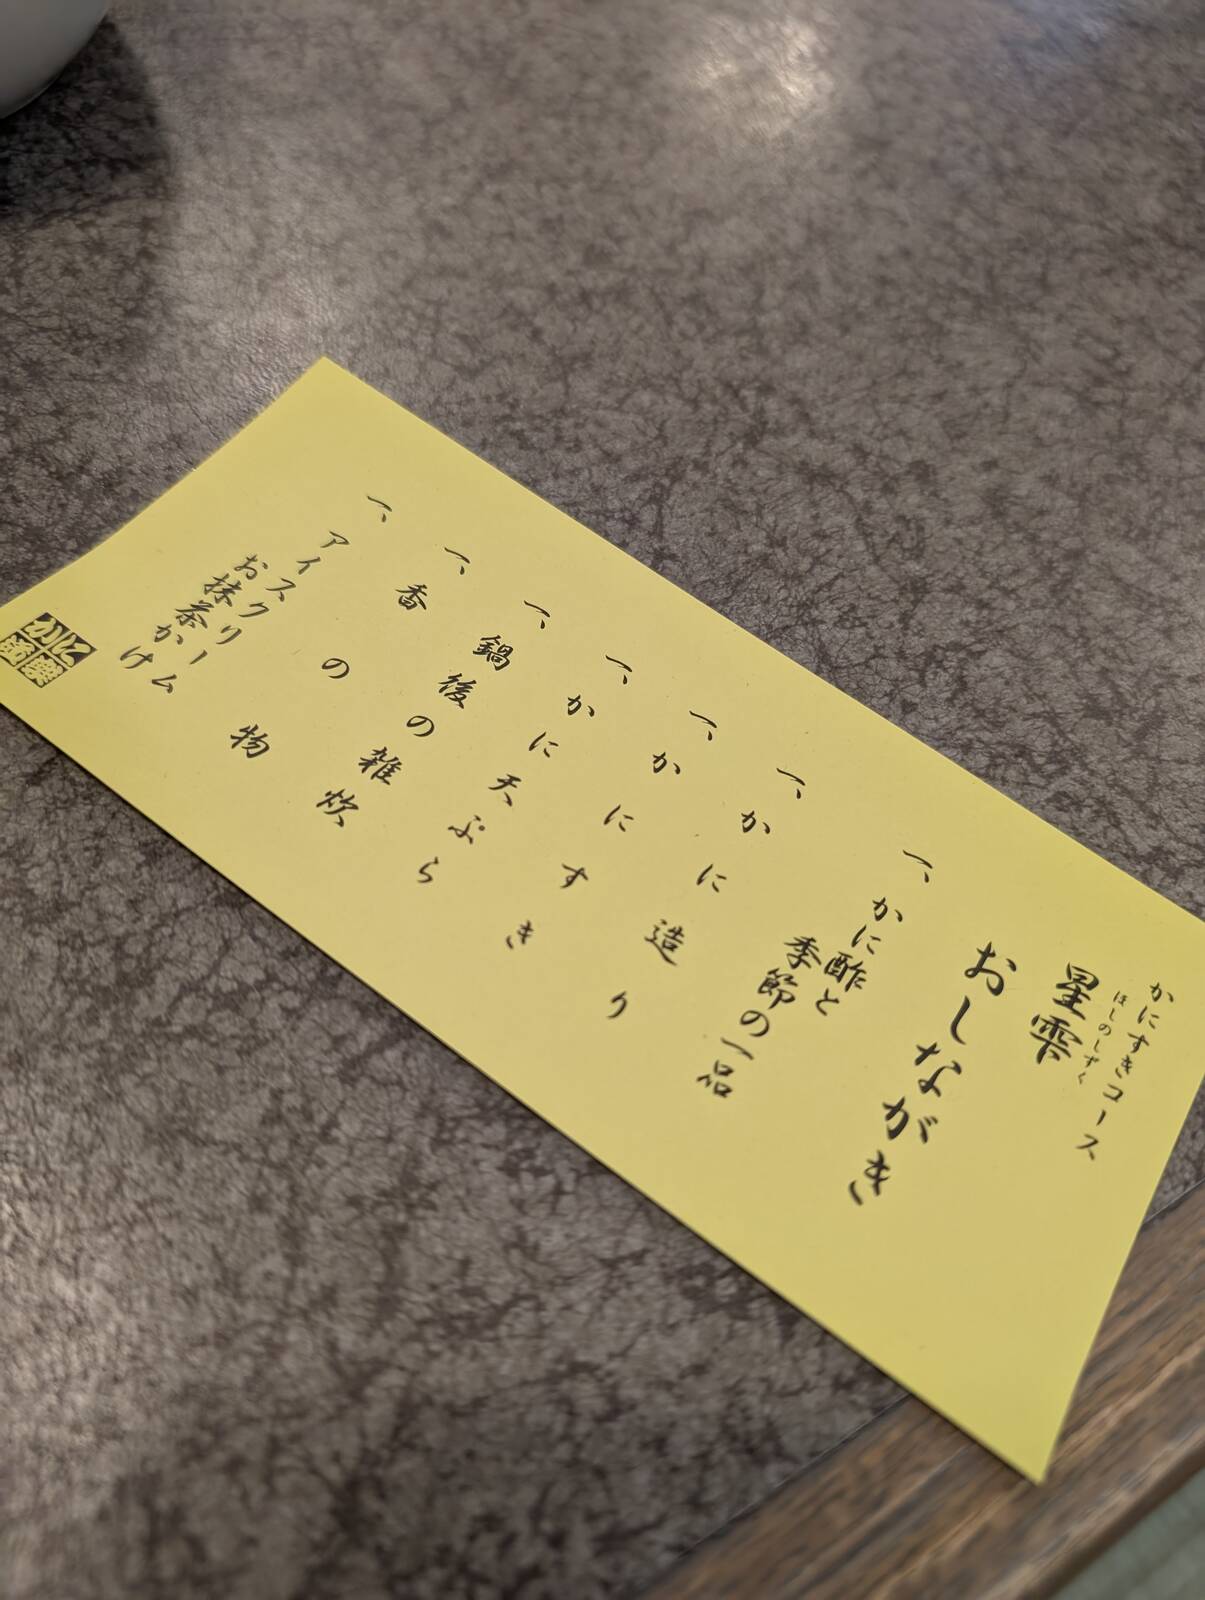 かにすきコース
ほしのしずく
星雫
おしながき
一、かに酢と
季節の一品
一、かに造り
一、かにすき
一、かに天ぷら
一、鍋後の雑炊
一、香の物
一、アイスクリーム
お抹茶かけ
かに道楽